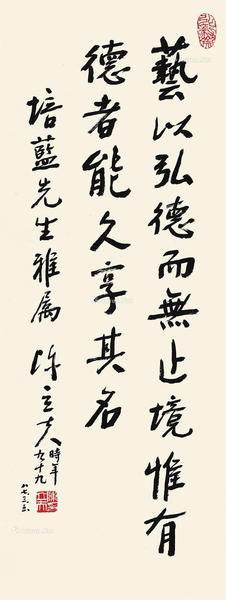 藝以弘德而無止境惟有
德者能久享其名
培藍先生雅屬 陳立夫 時年九十九
八七、三、三